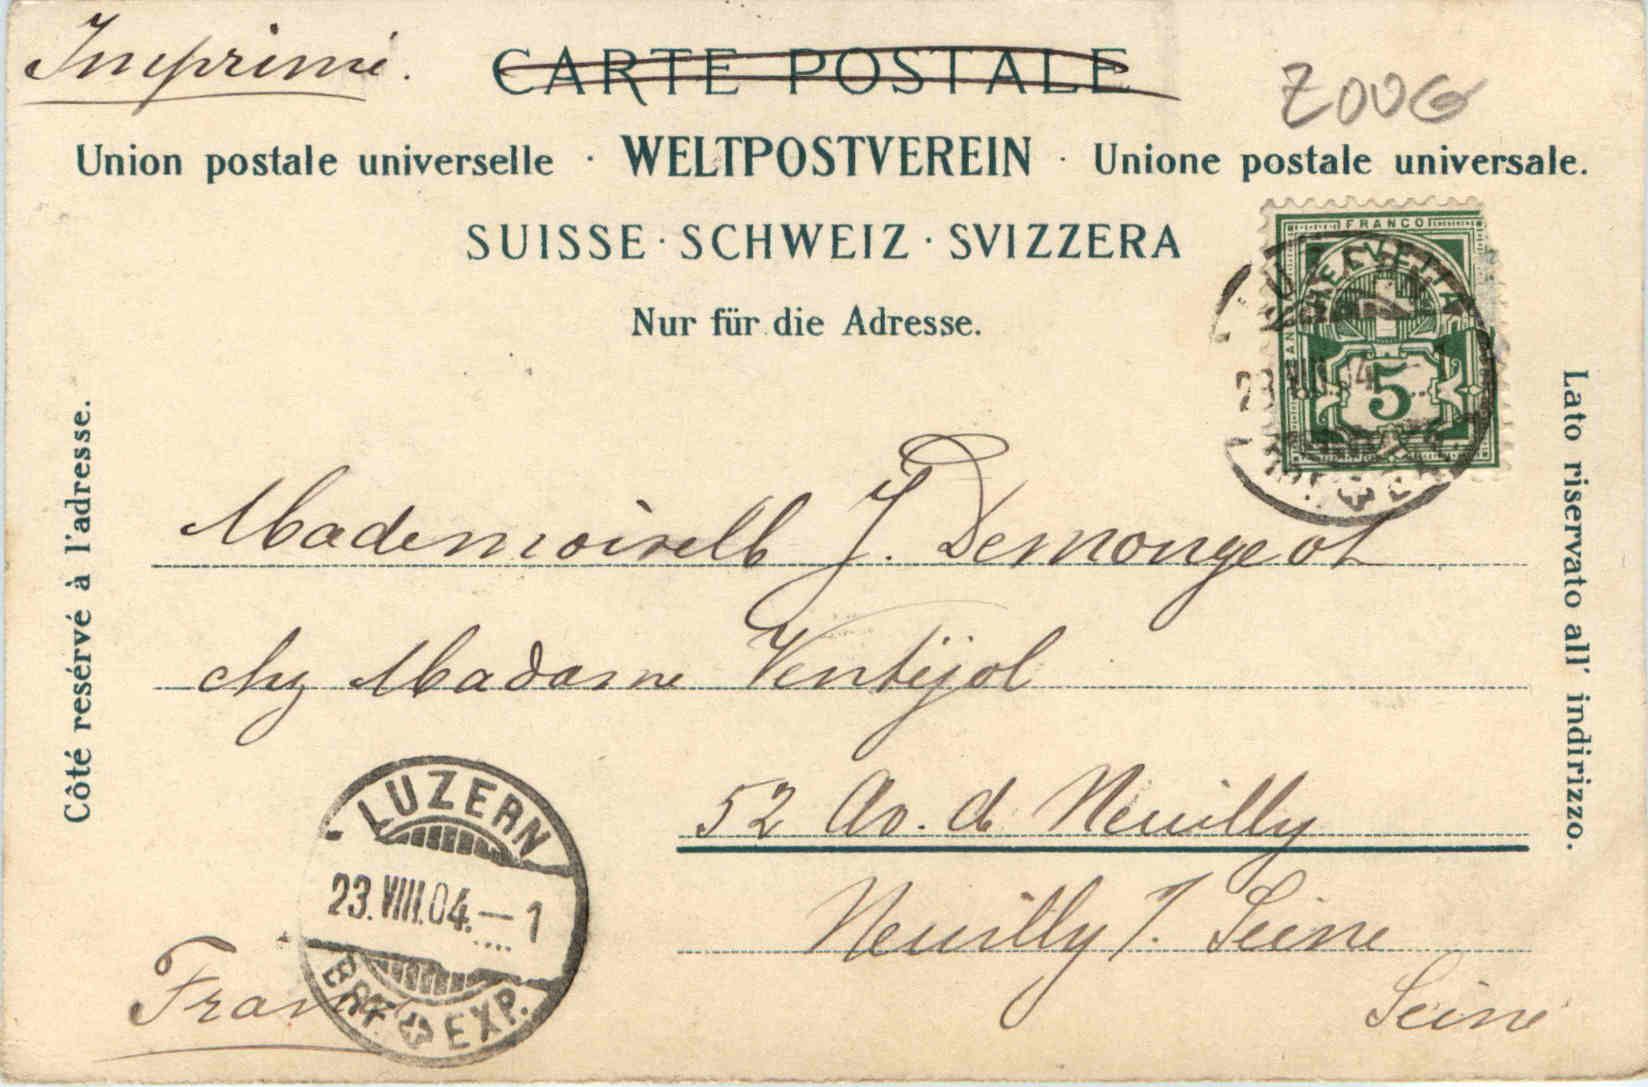 Imprimé.
CARTE POSTALE
Z00G
Union postale universelle · WELTPOSTVEREIN · Unione postale universale.
SUISSE · SCHWEIZ · SVIZZERA
Nur für die Adresse.
FRANCO
HELVETIA
5
23.VIII.04
Côté resérvé à l'adresse.
Lato riservato all' indirizzo.
Mademoiselle J. Demongeot
chez Madame Ventéjol
52 Av. de Neuilly
Neuilly s/. Seine
Seine
France
LUZERN
23.VIII.04.–1
BRF. EXP.